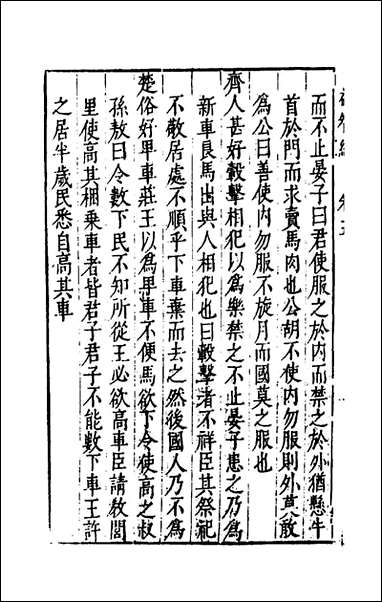 而不止晏子曰君使服之於内而禁之於外猶懸牛
首於門而求賣馬肉也公胡不使内勿服則外莫敢
爲公曰善使内勿服不旋月而國莫之服也
齊人甚好轂擊相犯以爲樂禁之不止晏子患之乃爲
新車良馬出與人相犯也曰轂擊者不祥臣其祭祀
不敬居處不順乎下車棄而去之然後國人乃不爲
楚俗好卑車莊王以爲卑車不便馬欲下令使高之叔
孫敖曰令數下民不知所從王必欲高車臣請教閭
里使高其梱乗車者皆君子君子不能數下車王許
之居半歲民悉自高其車